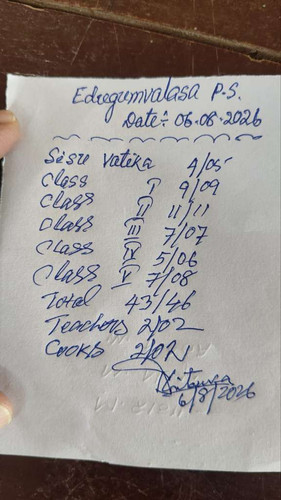 Edregumvalasa P.S.
Date:- 06.08.2026
Sisu Vatika 4/05
Class I 9/09
Class II 11/11
Class III 7/07
Class IV 5/06
Class V 7/08
Total 43/46
Teachers 2/02
Cooks 2/02
6/8/2026